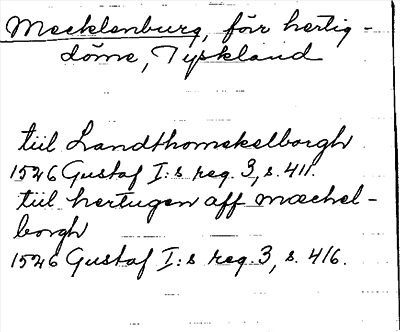 Mecklenburg, för hertig-
döme, Tyskland
till Landthomekelborgh
1526 Gustaf I:s reg. 3, s. 411.
till hertugen aff mæchel-
borgh
1526 Gustaf I:s reg. 3, s. 416.